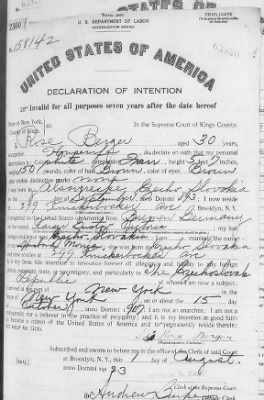 TRIPLICATE
U. S. DEPARTMENT OF LABOR
NATURALIZATION SERVICE
No. 150142
UNITED STATES OF AMERICA
DECLARATION OF INTENTION
Invalid for all purposes seven years after the date hereof
State of New York,
County of Kings,
In the Supreme Court of Kings County.
I, Rose Berger aged 30 years,
occupation Housewife, do declare on oath that my personal
description is: Color white, complexion Fair, height 5 feet 7 inches,
weight 150 pounds, color of hair Brown, color of eyes Brown
other visible distinctive marks none
I was born in Czecho Slovakia
on the day of September, anno Domini 1893; I now reside
at 799 Knickerbocker av, Brooklyn, N. Y.
I emigrated to the United States of America from Bremen Germany
on the vessel Kaiser
Czecho Slovakia; I am married
Czecho Slovakia
799 Knickerbocker av
It is my bona fide intention to renounce forever all allegiance and fidelity to any foreign
prince, potentate, state, or sovereignty, and particularly to The Czechoslovak
Republic of whom I am now a subject;
I arrived at the port of New York, in the
State of New York on or about the 15 day
of October, anno Domini 1907; I am not an anarchist; I am not a
polygamist nor a believer in the practice of polygamy; and it is my intention in good faith
to become a citizen of the United States of America and to permanently reside therein:
SO HELP ME GOD.
Rose Berger
Subscribed and sworn to before me in the office of the Clerk of said Court
at Brooklyn, N. Y., this 1 day of August,
anno Domini 1923
Clerk of the Supreme Court.